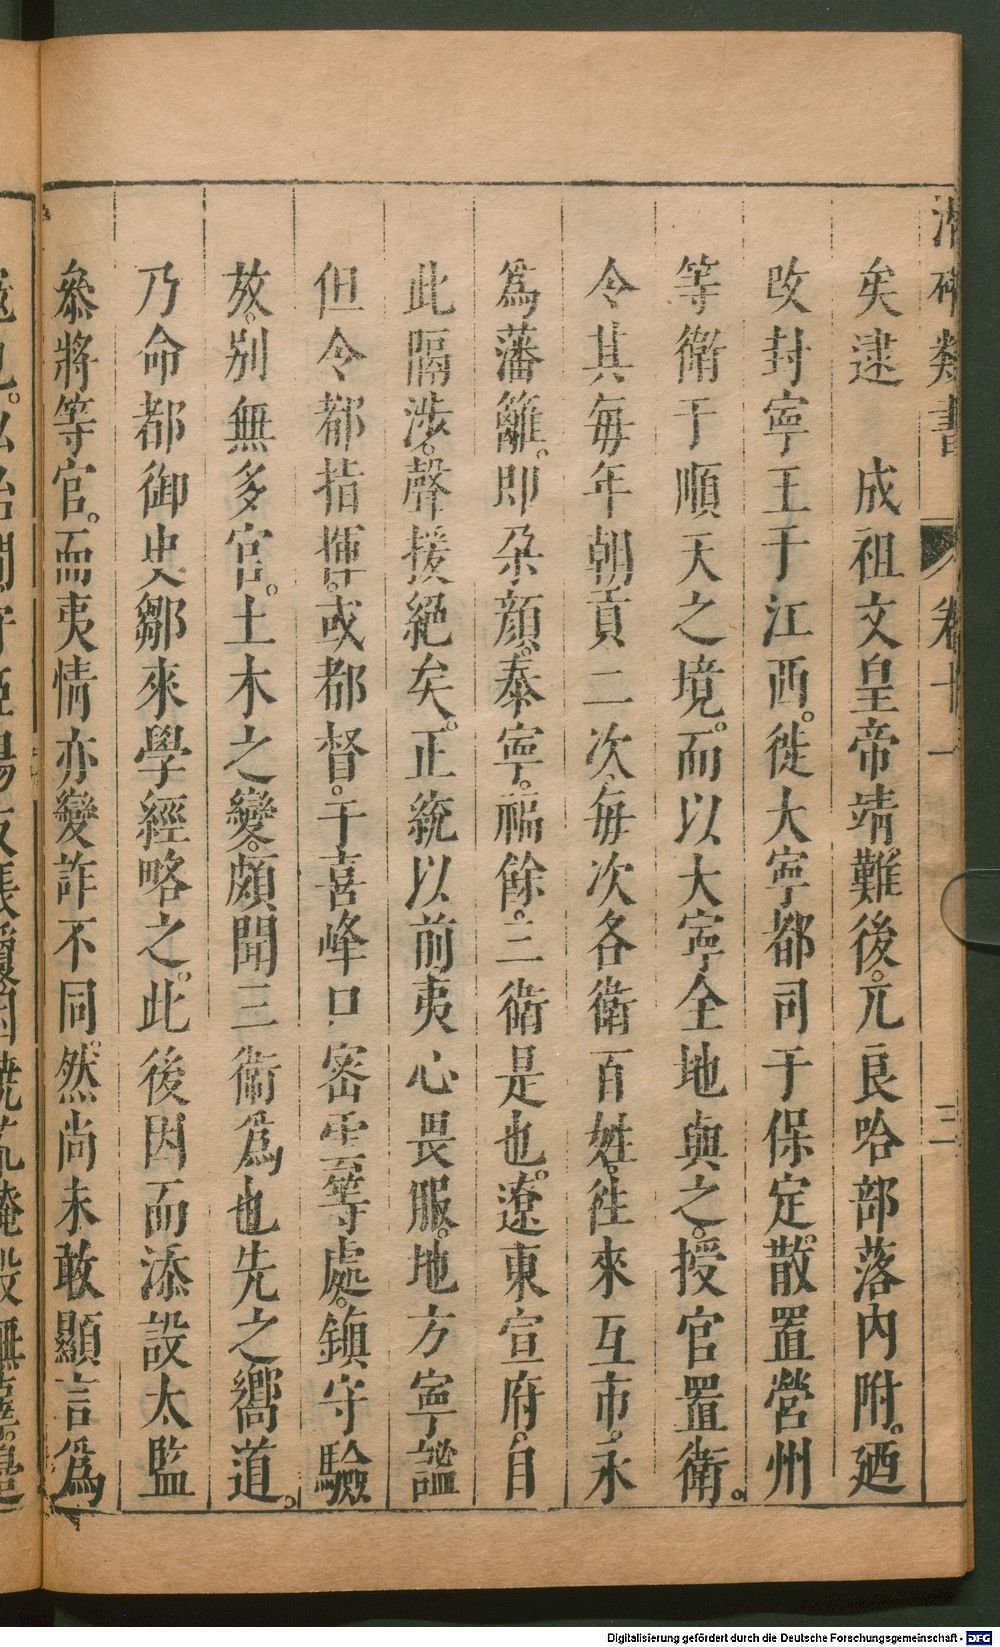 潛確類書 卷十一 三
矣逮 成祖文皇帝靖難後。兀良哈部落內附。廼
改封寧王于江西。徙大寧都司于保定。散置營州
等衛于順天之境。而以大寧全地與之。授官置衛。
令其每年朝貢二次。每次各衛百姓。徃來互市。永
爲藩籬。即朵顏。泰寧。福餘。三衛是也。遼東宣府。自
此隔涉。聲援絕矣。正統以前夷心畏服。地方寧謐
但令都指揮。或都督。于喜峰口密雲等處。鎮守驗
放。別無多官。土木之變。頗聞三衛爲也先之嚮道。
乃命都御史鄒來學經略之。此後因而添設太監
叅將等官。而夷情亦變詐不同。然尚未敢顯言爲
Digitalisierung gefördert durch die Deutsche Forschungsgemeinschaft - DFG